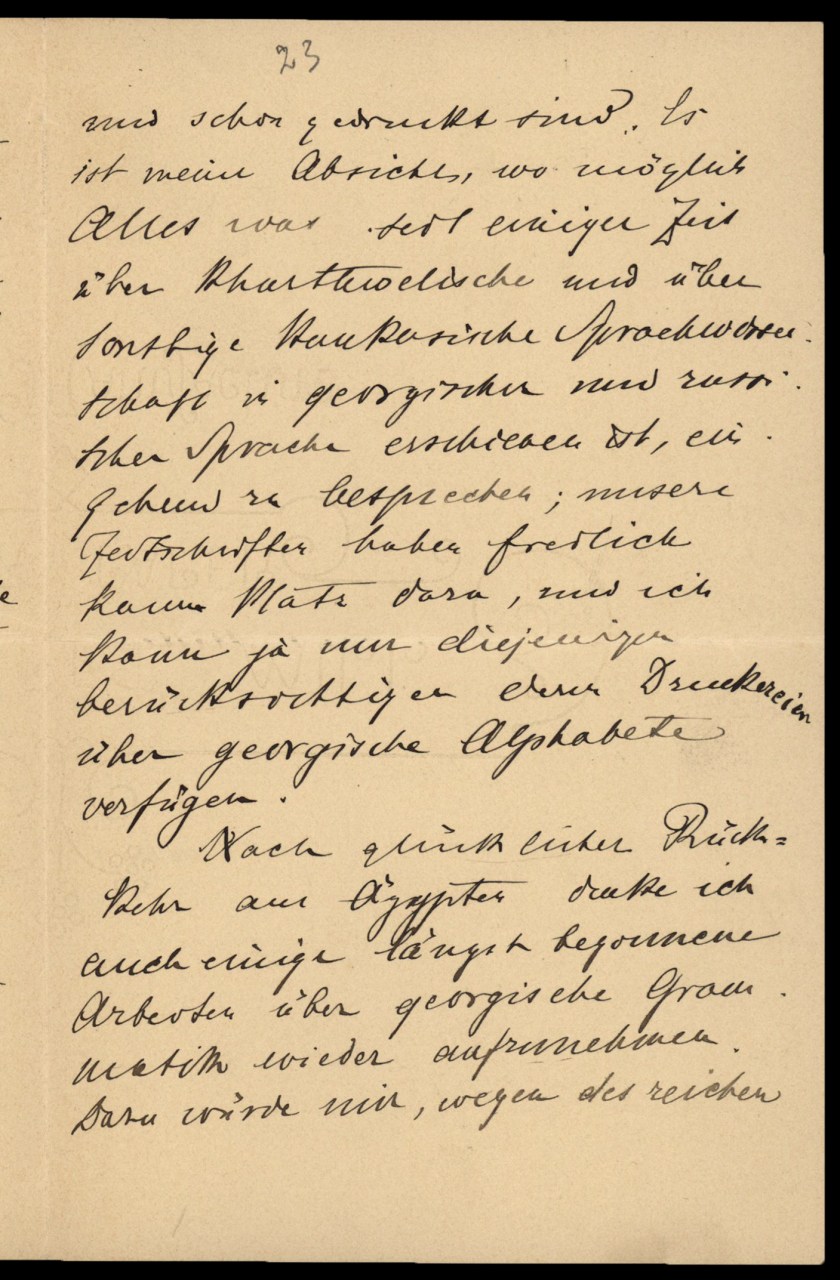 23
und schon gedruckt sind. Es
ist meine Absicht, wo möglich
Alles was seit einiger Zeit
über Kharthwelische und über
sonstige Kaukasische Sprachwissen-
schaft in georgischer und russi-
scher Sprache erschienen ist, ein-
gehend zu besprechen; unsere
Zeitschriften haben freilich
kaum Platz dazu, und ich
kann ja nur diejenigen
berücksichtigen deren Druckereien
über georgische Alphabete
verfügen.
Nach glücklicher Rück=
kehr aus Ägypten denke ich
auch einige längst begonnene
Arbeiten über georgische Gram-
matik wieder aufzunehmen.
Dazu würde mir, wegen des reichen